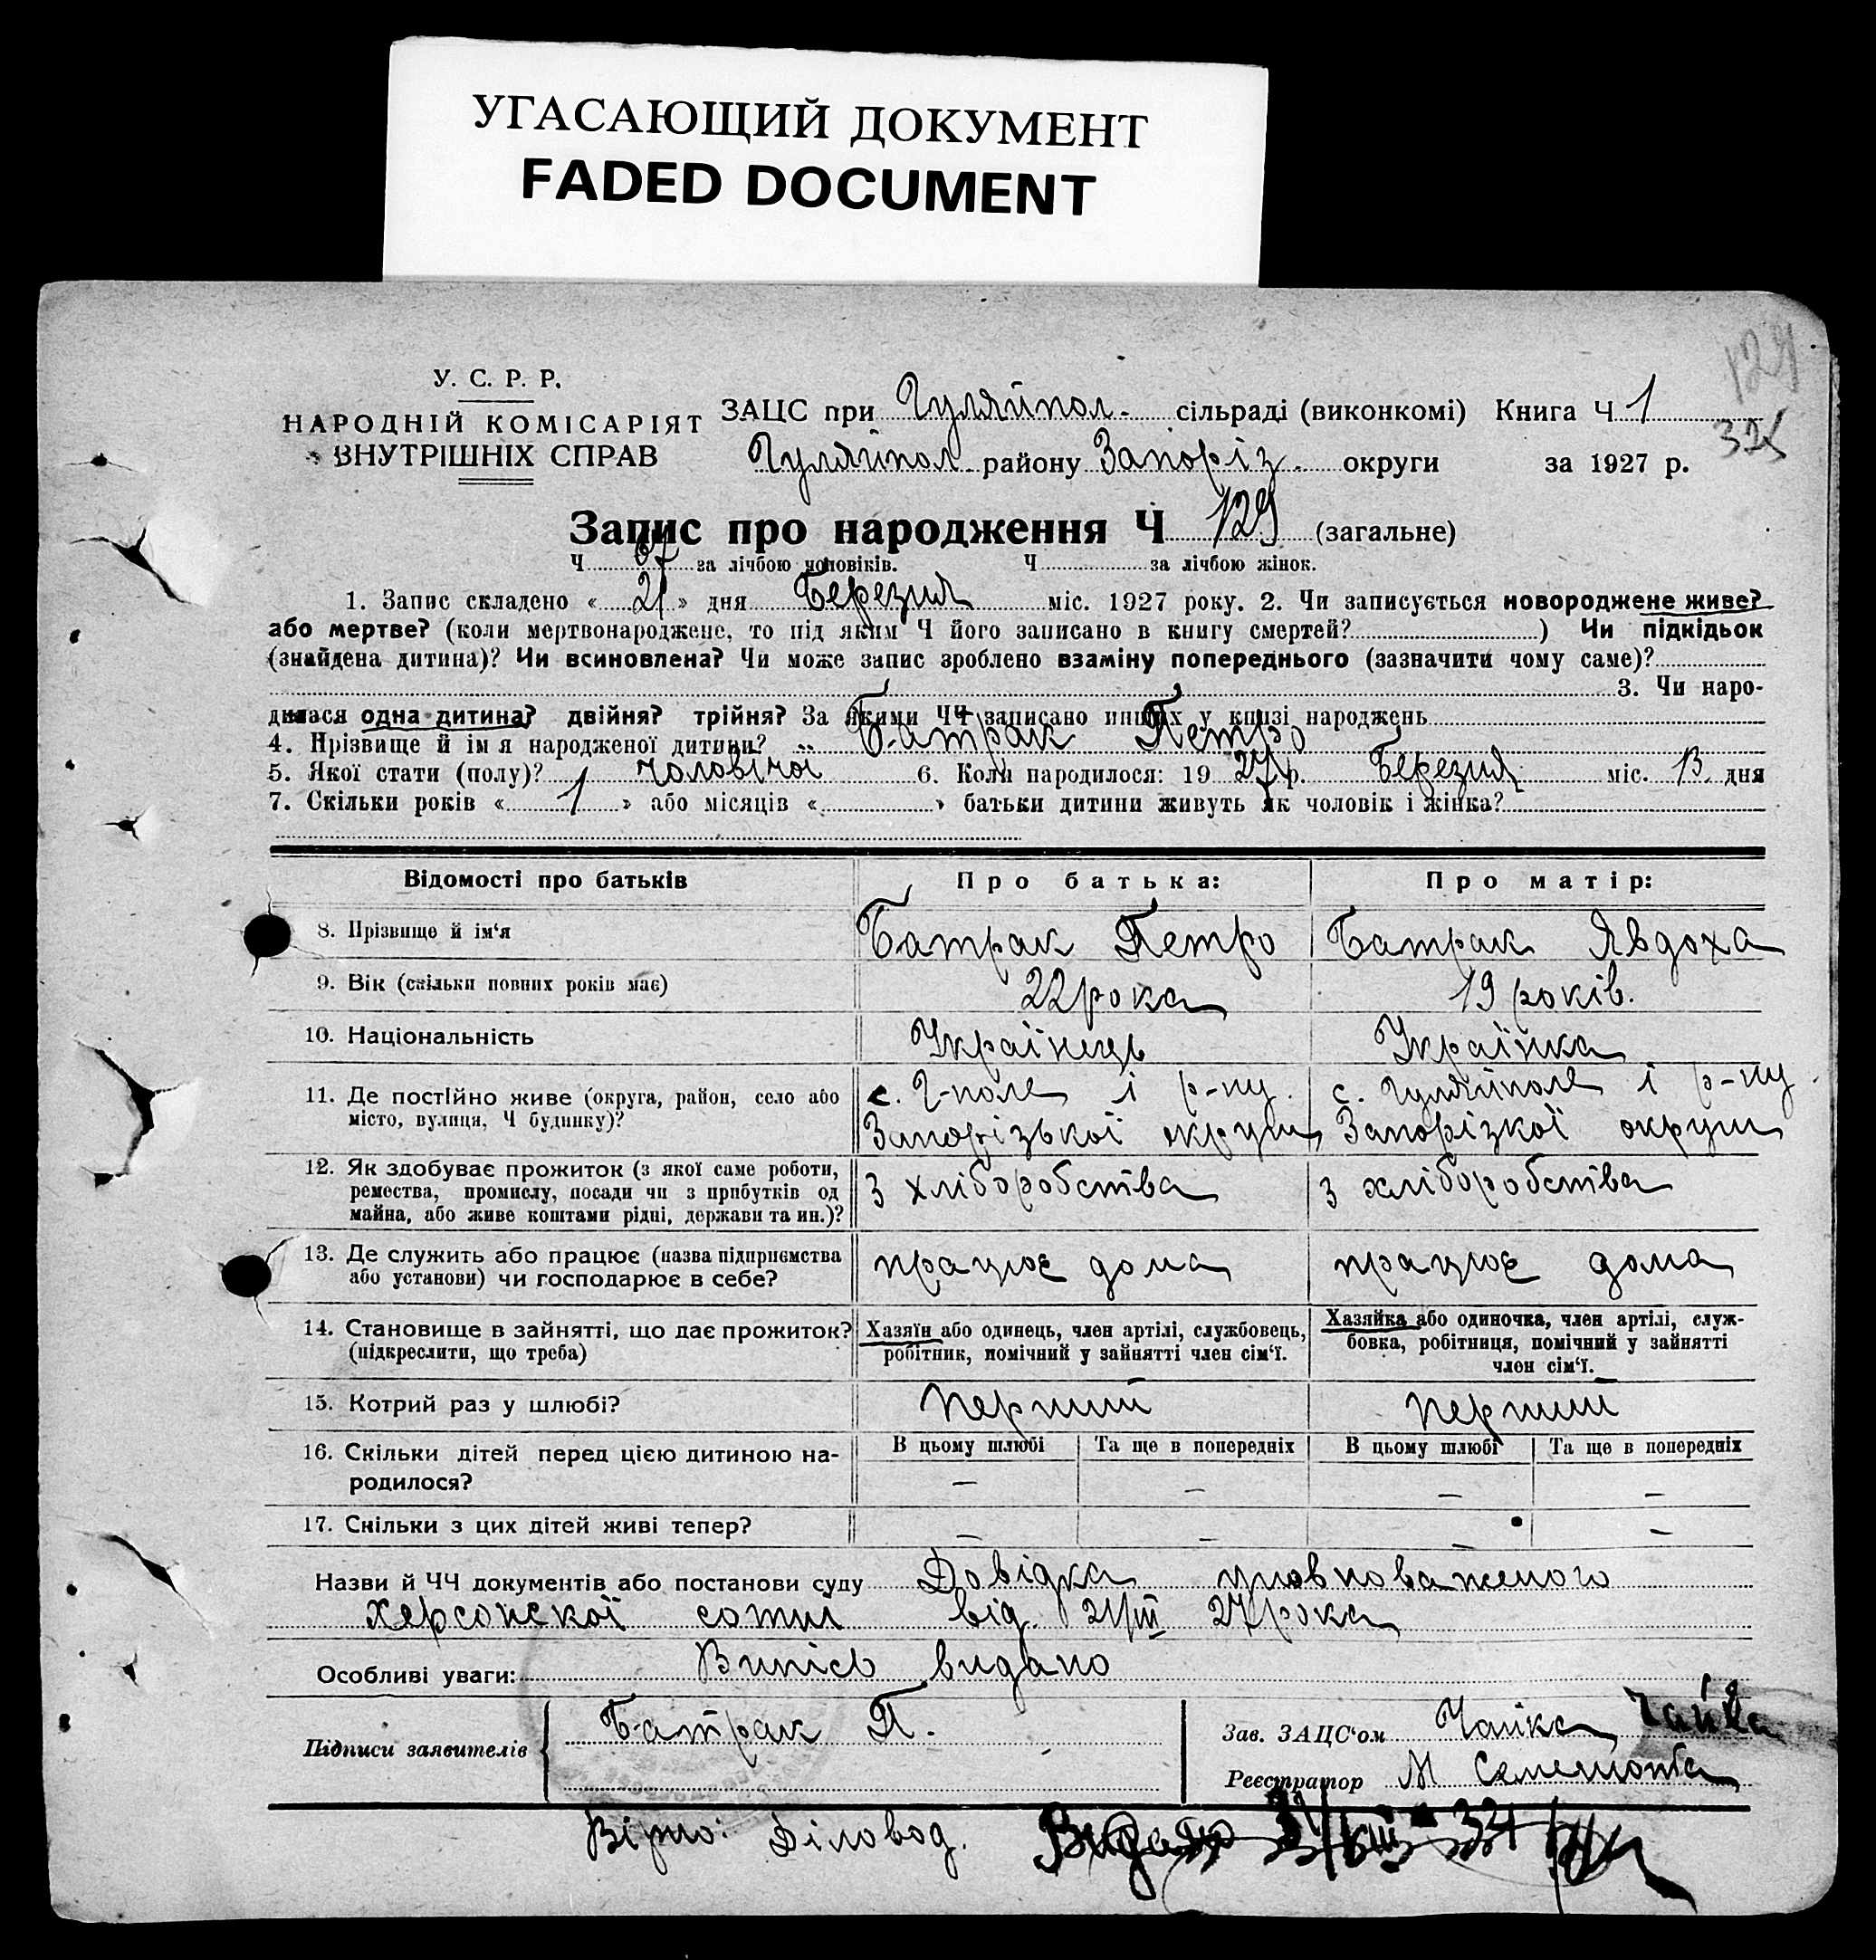 УГАСАЮЩИЙ ДОКУМЕНТ
FADED DOCUMENT
129
У. С. Р. Р.
НАРОДНІЙ КОМІСАРІЯТ
ВНУТРІШНІХ СПРАВ
ЗАЦС при Гуляйпол. сільраді (виконкомі) Книга Ч 1
Гуляйпол району Запоріз. округи за 1927 р.
Запис про народження Ч 129 (загальне)
Ч 67 за лічбою чоловіків. Ч за лічбою жінок.
1. Запис складено « 21 » дня Березня міс. 1927 року. 2. Чи записується новороджене живе?
або мертве? (коли мертвонароджене, то під яким Ч його записано в книгу смертей? ) Чи підкідьок
(знайдена дитина)? Чи всиновлена? Чи може запис зроблено взаміну попереднього (зазначити чому саме)?
3. Чи наро-
дилася одна дитина? двійня? трійня? За якими ЧЧ записано инших у книзі народжень
4. Прізвище й ім я народженої дитини? Батрак Петро
5. Якої стати (полу)? 1 чоловічої 6. Коли народилося: 19 27 р. Березня міс. 13 дня
7. Скільки років « 1 » або місяців « » батьки дитини живуть як чоловік і жінка?
Відомості про батьків Про батька: Про матір:
8. Прізвище й ім'я Батрак Петро Батрак Явдоха
9. Вік (скільки повних років має) 22 рока 19 років.
10. Національність Українець Українка
11. Де постійно живе (округа, район, село або
місто, вулиця, Ч будинку)?
с. Г-поле і р-ну.
Запорізької округи
с. Гуляйполе і р-ну
Запорізкої округи
12. Як здобуває прожиток (з якої саме роботи,
ремества, промислу, посади чи з прибутків од
майна, або живе коштами рідні, держави та ин.)?
З хліборобства З хліборобства
13. Де служить або працює (назва підприємства
або установи) чи господарює в себе?
працює дома працює дома
14. Становище в зайнятті, що дає прожиток?
(підкреслити, що треба)
Хазяїн або одинець, член артілі, службовець,
робітник, помічний у зайнятті член сім'ї.
Хазяйка або одиночка, член артілі, служ-
бовка, робітниця, помічний у зайнятті
член сім'ї.
15. Котрий раз у шлюбі? перший перший
16. Скільки дітей перед цією дитиною на-
родилося?
В цьому шлюбі Та ще в попередніх В цьому шлюбі Та ще в попередніх
— — — —
17. Скільки з цих дітей живі тепер? — — — —
Назви й ЧЧ документів або постанови суду Довідка уповноваженого
Херсонскої сотні від 21/III 27 рока
Особливі уваги: Випісь видано
Підписи заявителів Батрак П.
Зав. ЗАЦС'ом Чайка Чайка
Реєстратор М
Вірно: Діловод.
Видано